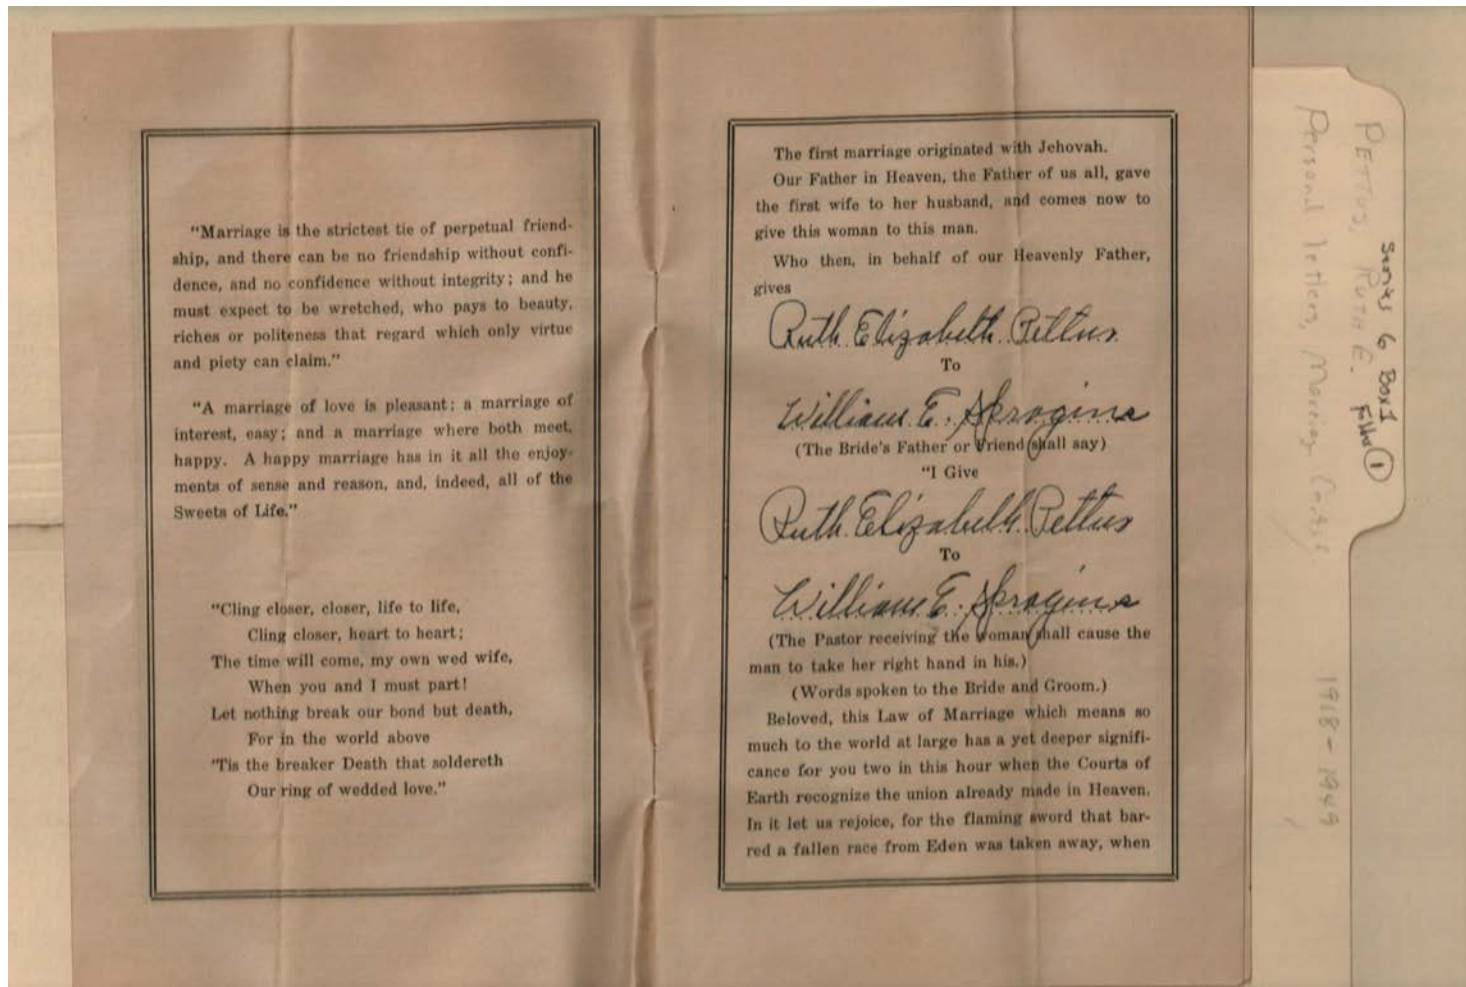 "Marriage is the strictest tie of perpetual friend-
ship, and there can be no friendship without confi-
dence, and no confidence without integrity; and he
must expect to be wretched, who pays to beauty,
riches or politeness that regard which only virtue
and piety can claim."
"A marriage of love is pleasant; a marriage of
interest, easy; and a marriage where both meet,
happy. A happy marriage has in it all the enjoy-
ments of sense and reason, and, indeed, all of the
Sweets of Life."
"Cling closer, closer, life to life,
Cling closer, heart to heart;
The time will come, my own wed wife,
When you and I must part!
Let nothing break our bond but death,
For in the world above
'Tis the breaker Death that soldereth
Our ring of wedded love."
The first marriage originated with Jehovah.
Our Father in Heaven, the Father of us all, gave
the first wife to her husband, and comes now to
give this woman to this man.
Who then, in behalf of our Heavenly Father,
gives
Ruth Elizabeth Pettus
To
William E. Spragins
(The Bride's Father or Friend shall say)
"I Give
Ruth Elizabeth Pettus
To
William E. Spragins
(The Pastor receiving the woman shall cause the
man to take her right hand in his.)
(Words spoken to the Bride and Groom.)
Beloved, this Law of Marriage which means so
much to the world at large has a yet deeper signifi-
cance for you two in this hour when the Courts of
Earth recognize the union already made in Heaven.
In it let us rejoice, for the flaming sword that bar-
red a fallen race from Eden was taken away, when
Series 6 Box 1
Folder 1
PETTUS, RUTH E.
Personal letters, Marriage Certif. 1918-1949